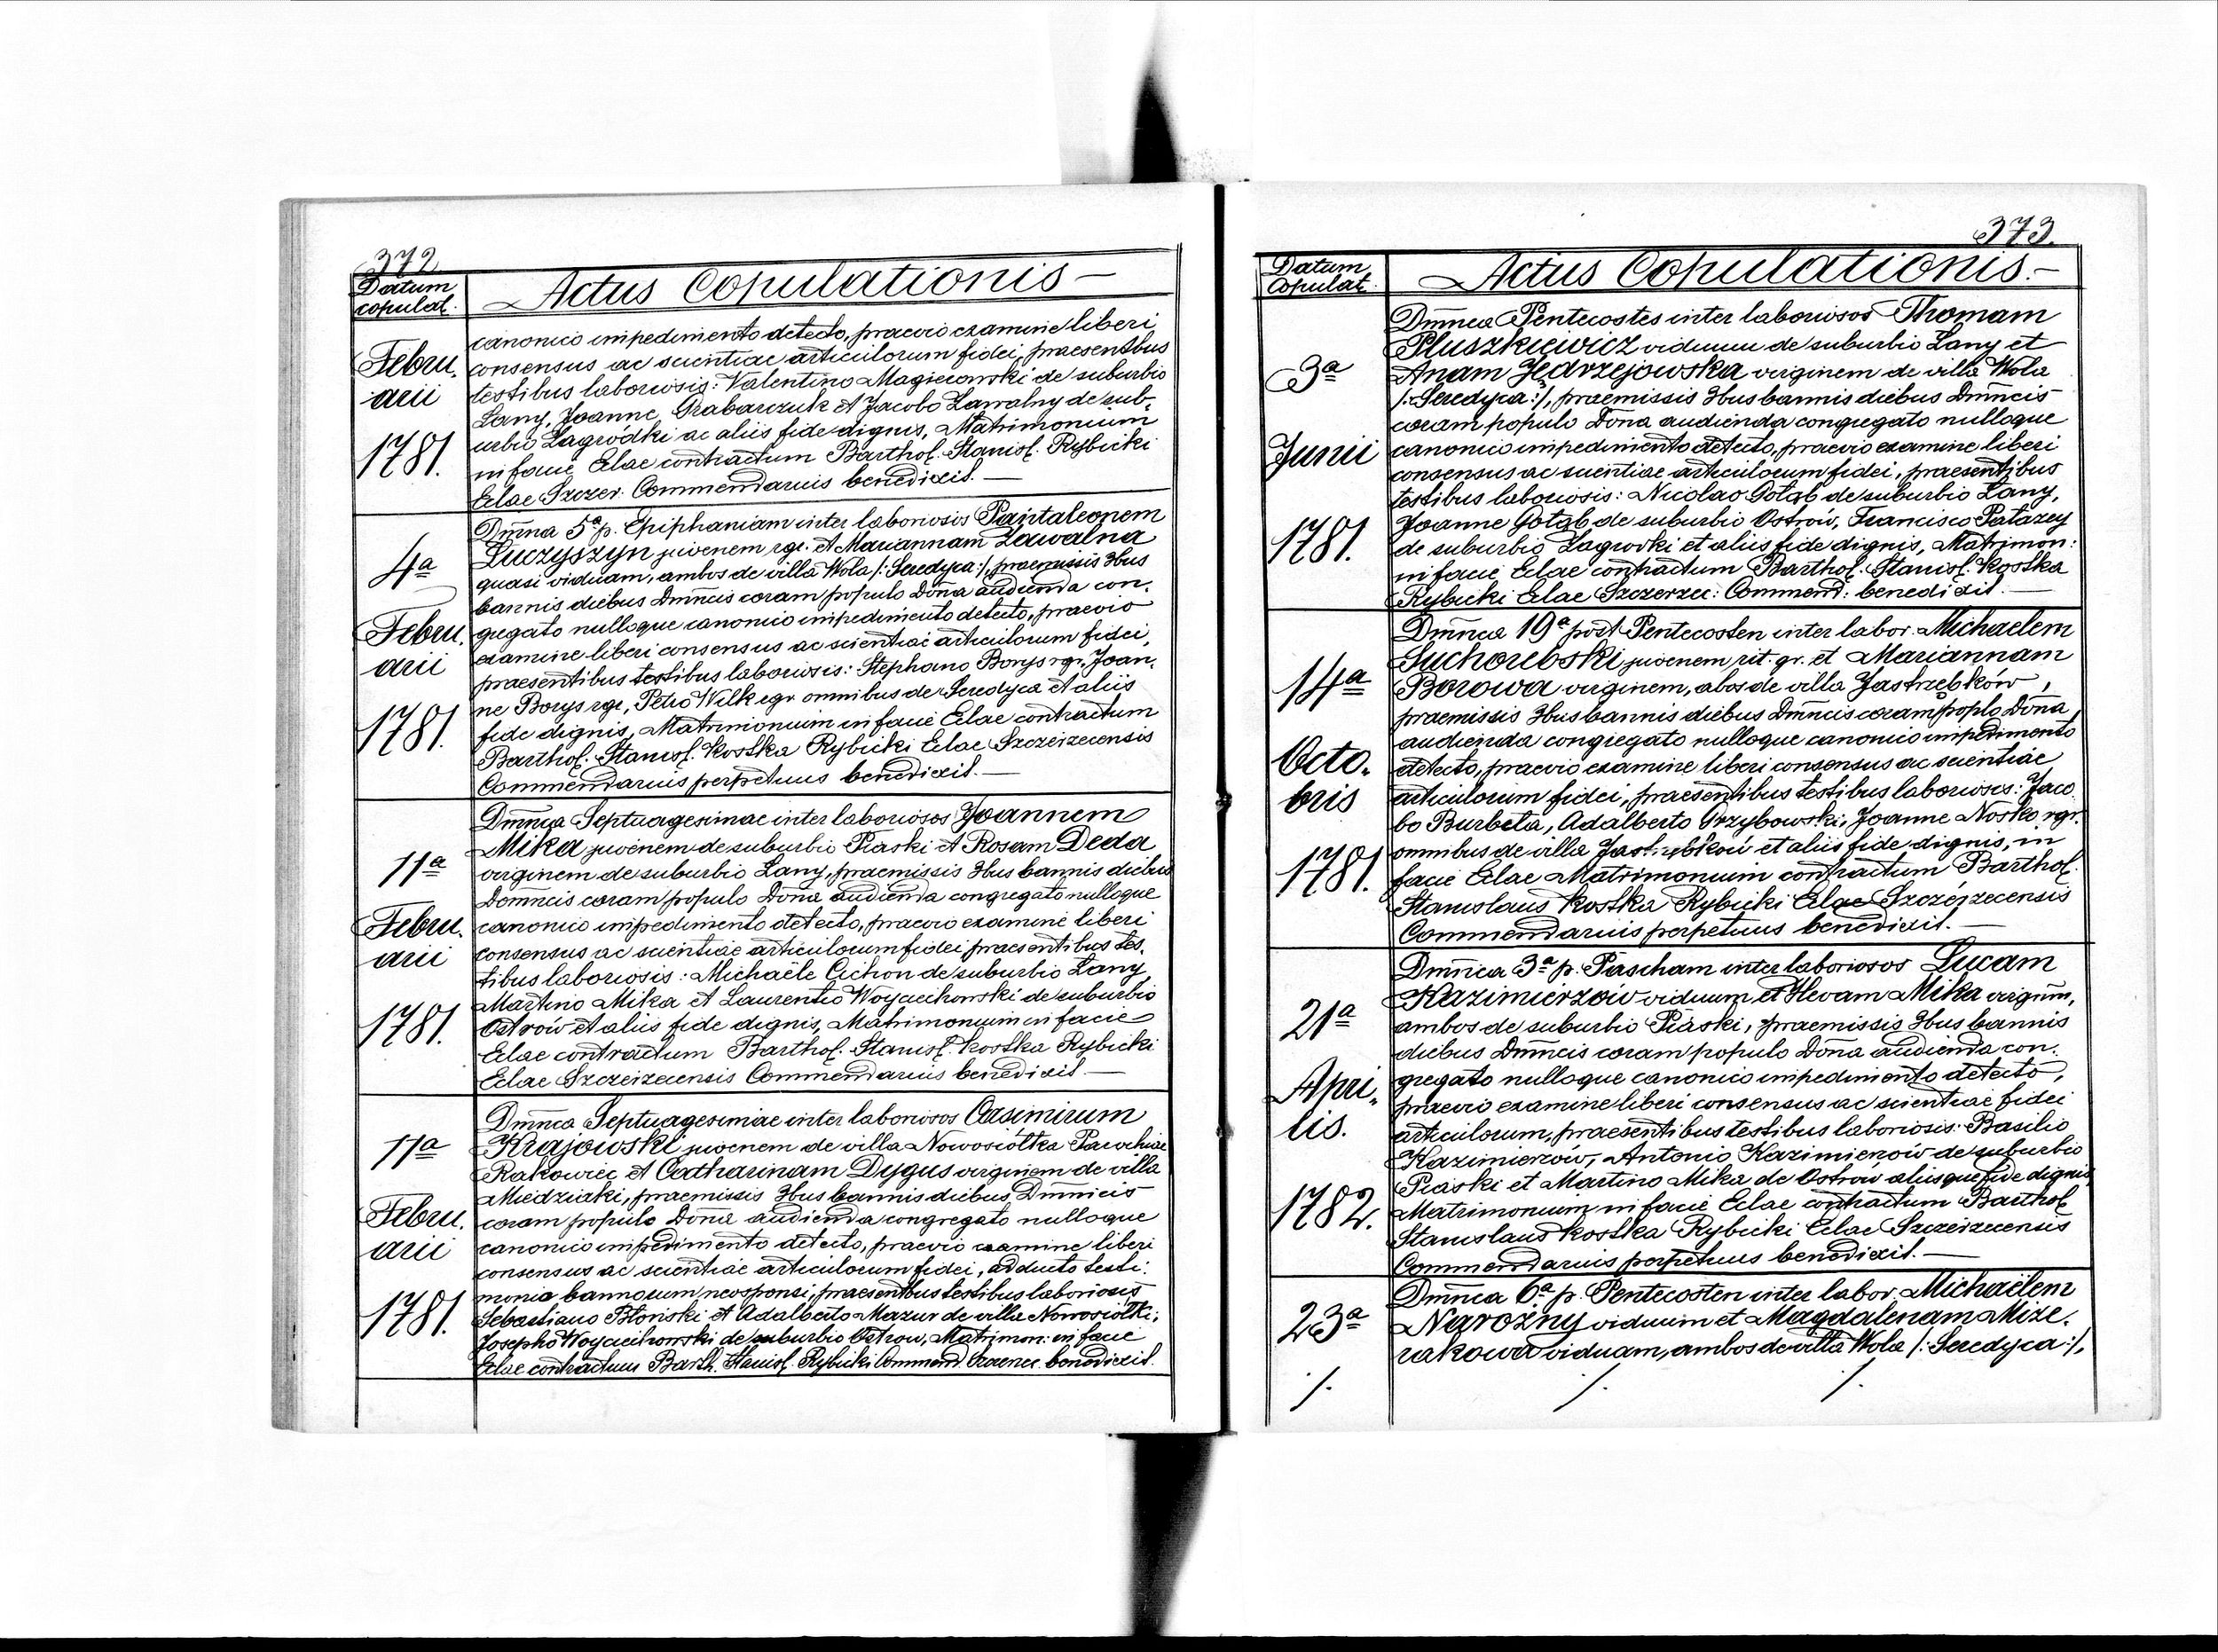 372
Datum
copulat.
Actus Copulationis —
Febru.
arii
1781.
canonico impedimento detecto, praevio examine liberi
consensus ac scientiae articulorum fidei, praesentibus
testibus laboriosis: Valentino Magierowski de suburbio
Lany, Joanne Grabarczuk et Jacobo Zawalny de sub-
urbio Zagródki ac aliis fide dignis, Matrimonium
in facie Eclae contractum Barthol. Stanisl. Rybicki
Eclae Szczer. Commendarius benedixit. —
4a
Febru.
arii
1781.
Dmna 5a p. Epiphaniam inter laboriosis Pantaleonem
Luczyszyn juvenem rgr. et Mariannam Zawalna
quasi viduam, ambos de villa Wola /: Seredyca :/, praemissis 3bus
bannis diebus Dmncis coram populo Dona audienda con-
gregato nulloque canonico impedimento detecto, praevio
examine liberi consensus ac scientiae articulorum fidei,
praesentibus testibus laboriosis: Stephano Borys rgr. Joan-
ne Borys rgr., Petro Wilk rgr. omnibus de Seredyca et aliis
fide dignis, Matrimonium in facie Eclae contractum
Barthol. Stanisl. Kostka Rybicki Eclae Szczeizecensis
Commendarius perpetuus benedixit. —
11a
Febru.
arii
1781.
Dmnca Septuagesimae inter laboriosos Joannem
Mika juvenem de suburbio Piaski et Rosam Deda
virginem de suburbio Lany, praemissis 3bus bannis diebus
Domncis coram populo Dona audienda congregato nulloque
canonico impedimento detecto, praevio examine liberi
consensus ac scientiae articulorum fidei praesentibus tes-
tibus laboriosis: Michaële Cichon de suburbio Lany,
Martino Mika et Laurentio Woyciechowski de suburbio
Ostrów et aliis fide dignis, Matrimonium in facie
Eclae contractum Barthol. Stanisl. Kostka Rybicki
Eclae Szczeizecensis Commendarius benedixit —
11a
Febru.
arii
1781.
Dmnca Septuagesimae inter laboriosos Casimirum
Krajowski juvenem de villa Nowosiółka Parochiae
Rakowiec et Catharinam Dygus virginem de villa
Miedziaki, praemissis 3bus bannis diebus Dmnicis
coram populo Dona audienda congregato nulloque
canonico impedimento detecto, praevio examine liberi
consensus ac scientiae articulorum fidei, adducto testi-
monio bannorum neosponsi, praesentibus testibus laboriosis
Sebastiano Błoński et Adalberto Mazur de villa Nowosiołki,
Josepho Woyciechowski de suburbio Ostrow, Matrimon: in facie
Eclae contractum Barth. Stanisl. Rybicki Commend. benedixit.
373.
Datum
Copulat.
Actus Copulationis. —
3a
Junii
1781.
Dmnca Pentecostes inter laboriosos Thomam
Pluszkiewicz viduum de suburbio Lany et
Anam Jędrzejowska virginem de villa Wola
/: Seredyca :/, praemissis 3bus bannis diebus Dmncis
coram populo Dona audienda congregato nulloque
canonico impedimento detecto, praevio examine liberi
consensus ac scientiae articulorum fidei, praesentibus
testibus laboriosis: Nicolao Gołąb de suburbio Lany,
Joanne Gołąb de suburbio Ostrów, Francisco Patazey
de suburbio Zagrodki et aliis fide dignis, Matrimon:
in facie Eclae contractum Barthol. Stanisl. Kostka
Rybicki Eclae Szczerzec: Commend: benedixit. —
14a
Octo-
bris
1781.
Dmnca 19a post Pentecosten inter labor. Michaelem
Suchorebski juvenem rit. gr. et Mariannam
Borowa virginem, abos de villa Jastrzębków,
praemissis 3bus bannis diebus Dmncis coram poplo Dona
audienda congregato nulloque canonico impedimento
detecto, praevio examine liberi consensus ac scientiae
articulorum fidei, praesentibus testibus laboriosis: Jaco
bo Burbela, Adalberto Grzybowski, Joanne Nosko rgr.
omnibus de villa Jastrzębków et aliis fide dignis, in
facie Eclae Matrimonium contractum Barthol.
Stanislaus Kostka Rybicki Eclae Szczéizecensis
Commendarius perpetuus benedixit. —
21a
Apri-
lis.
1782.
Dmnica 3a p. Pascham inter laboriosos Lucam
Kazimierzów viduum et Hevam Mika virginm,
ambos de suburbio Piaski, praemissis 3bus bannis
diebus Dmncis coram populo Dona audienda con-
gregato nulloque canonico impedimento detecto,
praevio examine liberi consensus ac scientiae fidei
articulorum, praesentibus testibus laboriosis: Basilio
Kazimierzow, Antonio Kazimierzów de suburbio
Piaski et Martino Mika de Ostrów aliisque fide dignis,
Matrimonium in facie Eclae contractum Barthol
Stanislaus Kostka Rybicki Eclae Szczeizecensis
Commendarius perpetuus benedixit. —
23a
Dmnca 6a p. Pentecosten inter labor. Michaëlem
Narożny viduum et Magdalenam Mize-
rakowa viduam, ambos de villa Wola /: Seredyca :/,
/. /. /.